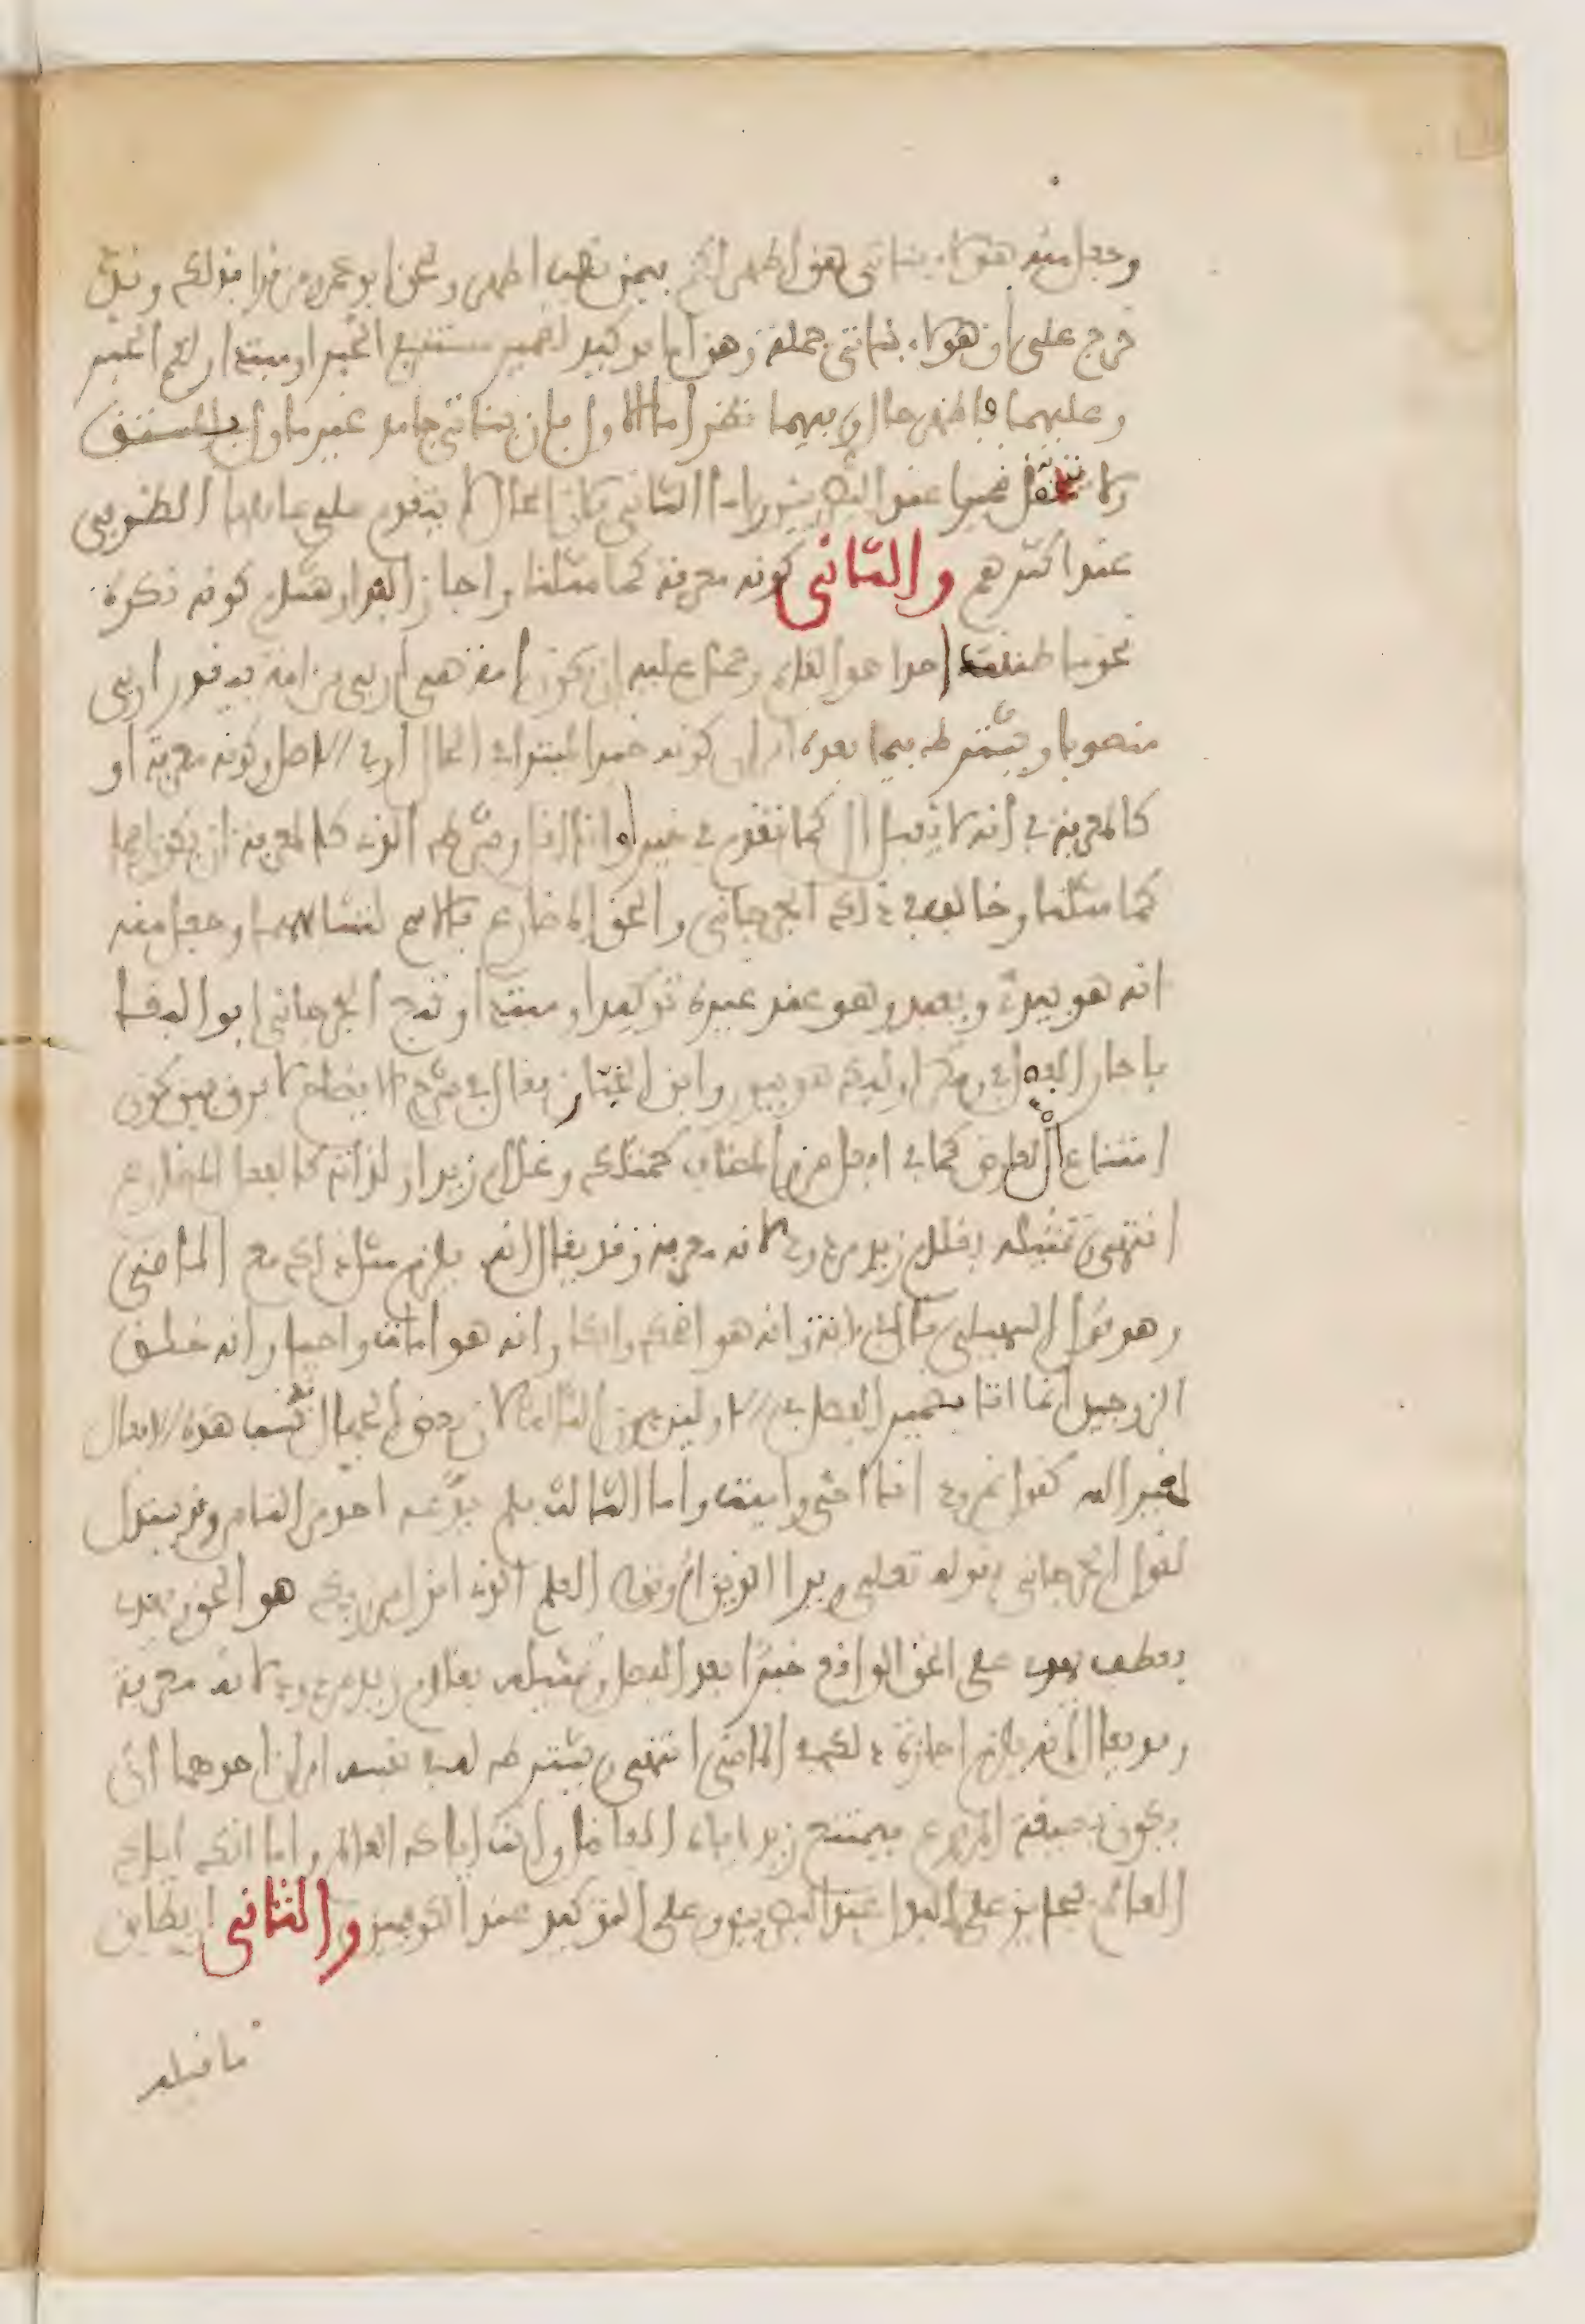 وجعل منه هؤلاء بناتي هن اطهر لكم بيمن نصب اطهر ولحن ابو عمرو من قرا بذلك وقد
خرج على ان هؤلاء بناتي جملة وهن اما توكيد لضمير مستتر في الخبر او مبتدا ولكم الخبر
وعليهما فاطهر حال وفيهما نظر اما الاول فان بناتي جامد غير ماول بالمشتق
ولا يتحمل ضميرا عند البصريين واما الثاني فلان الحال لا يتقدم على عاملها الظرفي
عند اكثرهم والثاني كونه معرفة كما مثلنا واجاز الفرا وهشام كونه نكرة
نحو ما ظننت احدا هو القائم وحملا عليه ان تكون امة هي اربى من امة فيقدر اربى
منصوبا ويشترط فيما بعده امران كونه خبرا لمبتدا في الحال او في الاصل وكونه معرفة او
كالمعرفة في انه لا يقبل ال كما تقدم في خيرا واقل وشرط الذي كالمعرفة ان يكون اسما
كما مثلنا وخالف في ذلك الجرجاني والحق المضارع بالاسم لتشابههما وجعل منه
انه هو يبدئ ويعيد وهو عند غيره توكيد او مبتدا وتبع الجرجاني ابو البقا
فاجاز الفصل في ومكر اوليك هو يبور وابن الخباز فقال في شرح الايضاح لا فرق بين كون
امتناع ال لعارض كما في افعل من والمضاف كمثلك وغلام زيد او لذاته كالفعل المضارع
انتهى وتمثيله بغلام زيد مردود لانه معرفة وقد يقال انه يلزم مثل ذلك مع الماضي
وهو قول السهيلي قال في وانه هو اضحك وابكى وانه هو امات واحيا وانه خلق
الزوجين انما اتا بضمير الفصل في الاولين دون الثالث لان بعض الجهال اثبت هذه الافعال
لغير الله كقول نمرود انا احيي واميت واما الثالث فلم يدعه احد من الناس وقد يستدل
لقول الجرجاني بقوله تعلى ويرا الذين اوتوا العلم الذي انزل اليك من ربك هو الحق ويهدي
بعطف يهدي على الحق الواقع خبرا بعد الفصل وتمثيله بغلام زيد مردود لانه معرفة
وقد يقال انه يلزم اجازة ذلك في الماضي انتهى ويشترط له في نفسه امران احدهما ان
يكون بصيغة المرفوع فيمتنع زيد اياه الفاضل وانت اياك العالم واما انك اياك
الفاضل فجايز على البدل عند البصريين وعلى التوكيد عند الكوفيين والثاني ان يطابق
ما قبله